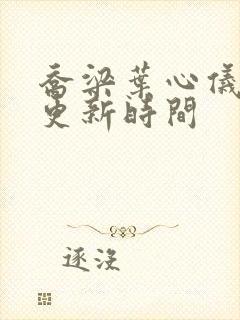 喬梁葉心儀
更新時間
逐沒